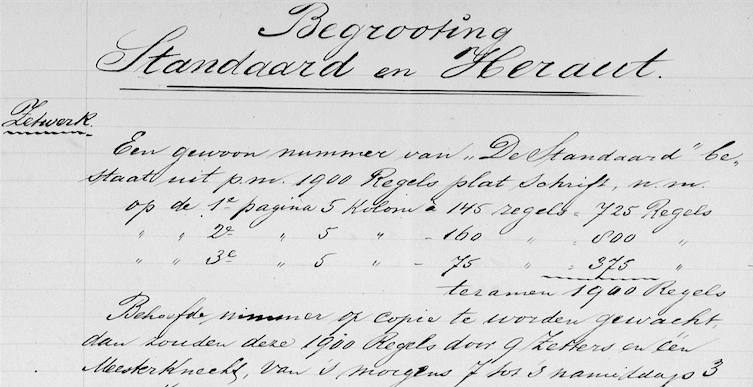 Begrooting
Standaard en Heraut.
Zetwerk.
Een gewoon nummer van „De Standaard" be„
staat uit p.m. 1900 Regels plat schrift, n.m.
op de 1e pagina 5 kolom à 145 regels = 725 Regels
„ „ 2e „ 5 „ - 160 „ = 800 „
„ „ 3e „ 5 „ - 75 „ = 375 „
tezamen 1900 Regels
Behoefde nimmer op copie te worden gewacht,
dan zouden deze 1900 Regels door 9 Zetters en één
Meesterknecht, van 's morgens 7 tot 's namiddags 3